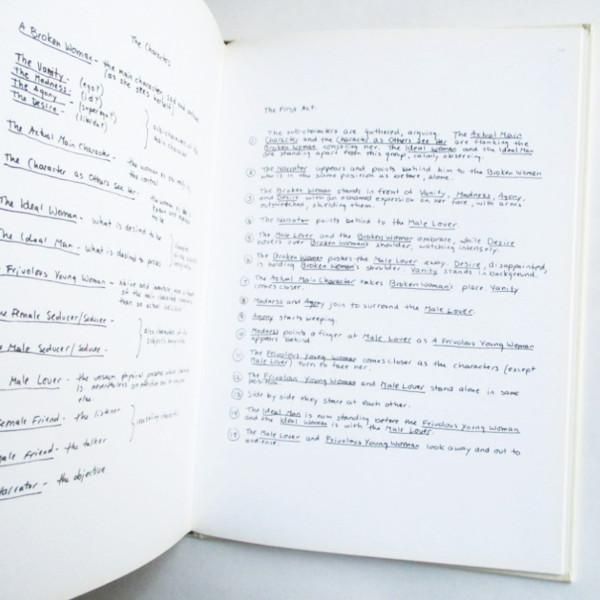 The Characters
A Broken Woman - the main character, sad and
(as she sees herself)
The Vanity - (ego?)
The Madness - (id?)
The Agony - (superego?)
The Desire - (libido?)
sub-characters of the main character
The Actual Main Character - the woman as
the control
The Character as Others See Her - the woman as
The Ideal Woman - what is desired to be
The Ideal Man - what is desired to
Frivolous Young Woman - naive and
of the main character
than an actual
The Female Seducer/Seducee -
The Male Seducer/Seducee -
Male Lover - the unseen physical presence who
is nevertheless
else.
Female Friend - the listener
Male Friend - the talker
Narrator - the objective
The First Act:
① The sub-characters are gathered, arguing. The Actual Main
Character and the Character as Others See Her are flanking the
Broken Woman consoling her. The Ideal Woman and the Ideal Man
are standing apart from this group, calmly observing.
② The Narrator appears and points behind him to the Broken Woman
who is in the same position as before, alone.
③ The Broken Woman stands in front of Vanity, Madness, Agony,
and Desire with an ashamed expression on her face, with arms
outstretched, shielding them.
④ The Narrator points behind to the Male Lover.
⑤ The Male Lover and the Broken Woman embrace, while Desire
hovers over Broken Woman's shoulder, watching intensely.
⑥ The Broken Woman pushes the Male Lover away. Desire, disappointed,
is holding Broken Woman's shoulder. Vanity stands in background.
⑦ The Actual Main Character takes Broken Woman's place. Vanity
comes closer.
⑧ Madness and Agony join to surround the Male Lover.
⑨ Agony starts weeping.
⑩ Madness points a finger at Male Lover as A Frivolous Young Woman
appears behind
⑪ The Frivolous Young Woman comes closer as the characters (except
Male Lover) turn to face her.
⑫ The Frivolous Young Woman and Male Lover stand alone in same
position.
⑬ Side by side they stare at each other.
⑭ The Ideal Man is now standing before the Frivolous Young Woman
and the Ideal Woman is with the Male Lover.
⑮ The Male Lover and Frivolous Young Woman look away and out to
audience.